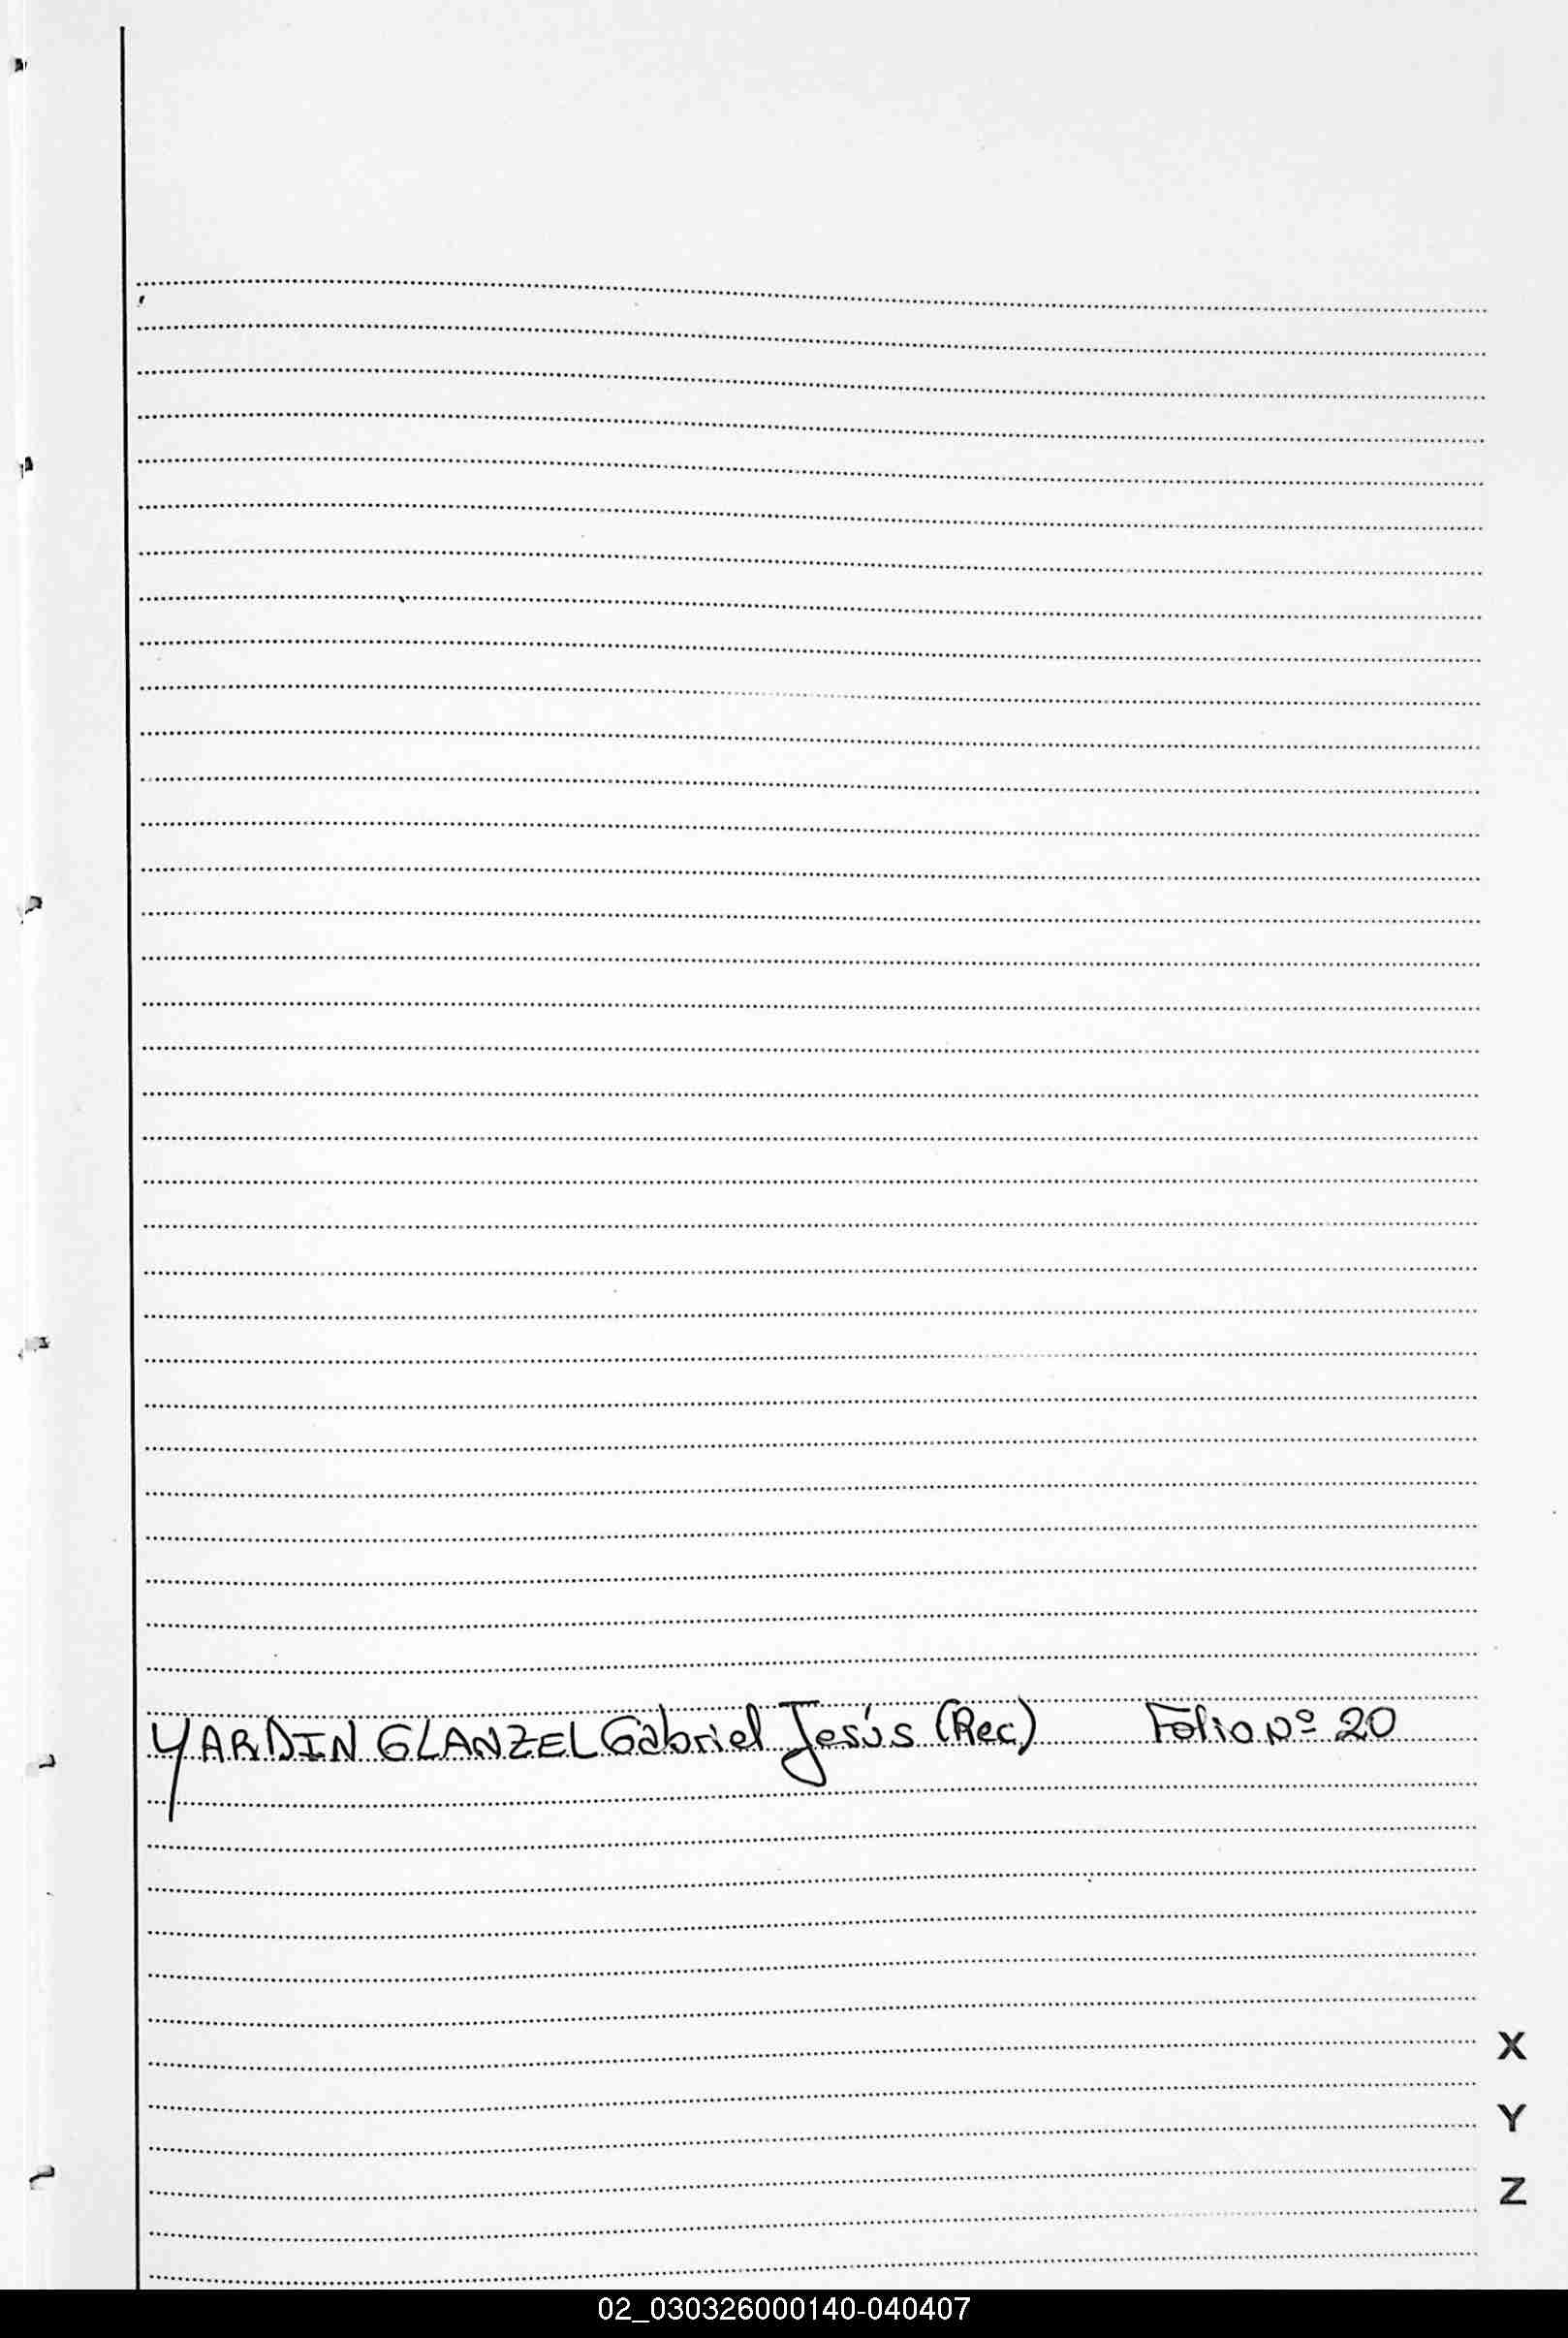 YARDIN GLANZEL Gabriel Jesús (Rec) Folio Nº 20
X
Y
Z
02_030326000140-040407